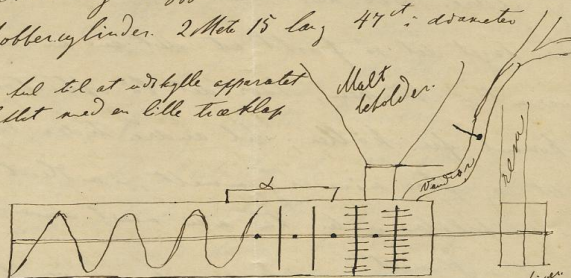 obbercylinder. 2 Mete 15 lang 47ct i diameter
hul til at udskylle apparatet
med en lille træklap
Malt
beholder.
Vandrør
rem
α